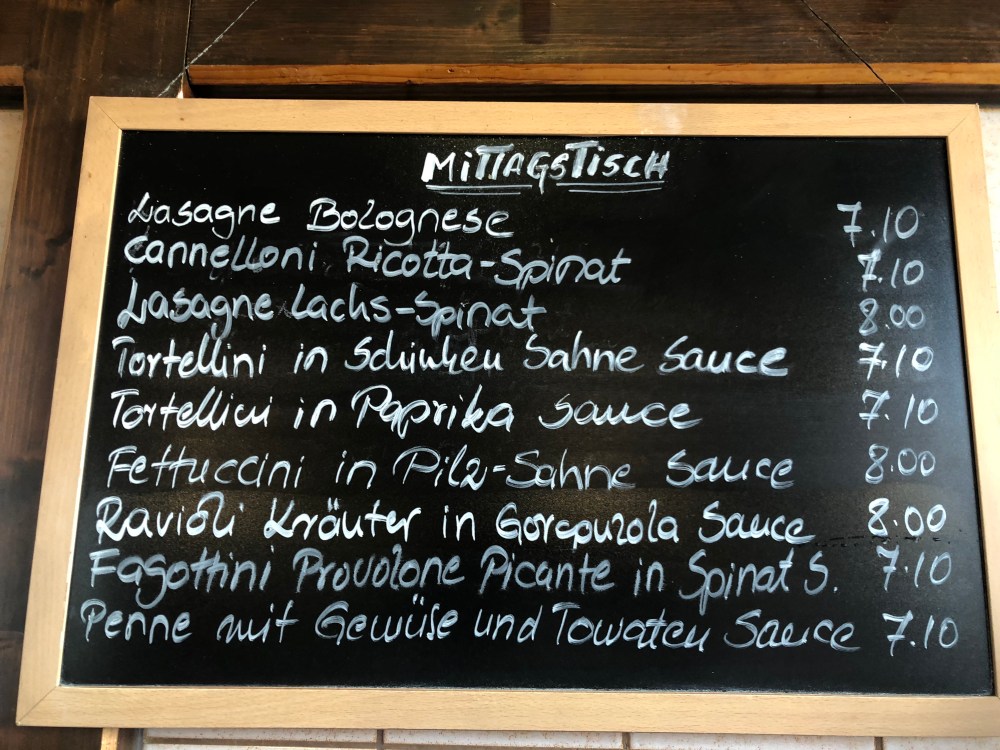 MITTAGSTISCH
Lasagne Bolognese 7.10
Cannelloni Ricotta-Spinat 7.10
Lasagne Lachs-Spinat 8.00
Tortellini in Schinken Sahne Sauce 7.10
Tortellini in Paprika Sauce 7.10
Fettuccini in Pilz-Sahne Sauce 8.00
Ravioli Kräuter in Gorgonzola Sauce 8.00
Fagottini Provolone Picante in Spinat S. 7.10
Penne mit Gemüse und Tomaten Sauce 7.10